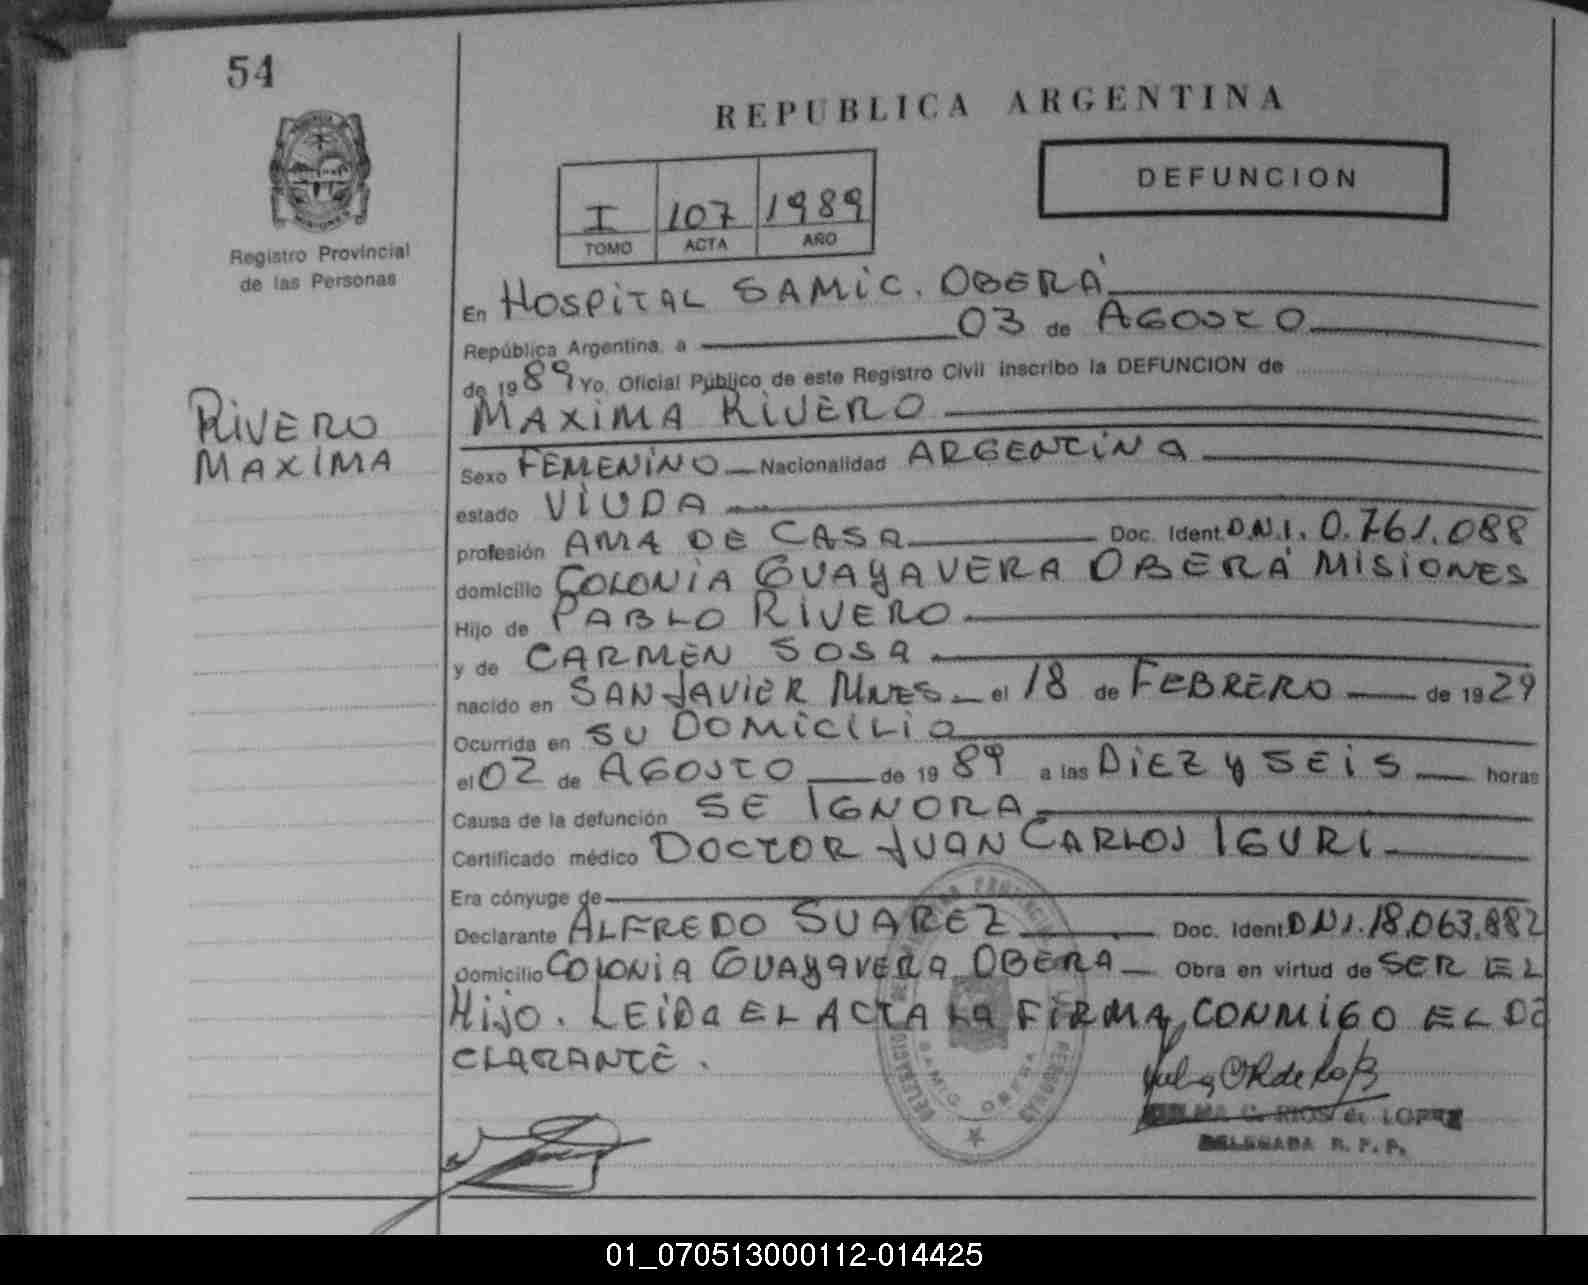 54
REPUBLICA ARGENTINA
DEFUNCION
I 107 1989
TOMO ACTA AÑO
Registro Provincial
de las Personas
RIVERO
MAXIMA
En HOSPITAL SAMIC. OBERÁ
República Argentina, a 03 de AGOSTO
de 1989 Yo, Oficial Público de este Registro Civil inscribo la DEFUNCION de
MAXIMA RIVERO
Sexo FEMENINO Nacionalidad ARGENTINA
estado VIUDA
profesión AMA DE CASA Doc. Ident. D.N.I. 0.761.088
domicilio COLONIA GUAYAVERA OBERÁ MISIONES
Hijo de PABLO RIVERO
y de CARMEN SOSA
nacido en SAN JAVIER MNES. el 18 de FEBRERO de 1929
Ocurrida en SU DOMICILIO
el 02 de AGOSTO de 1989 a las DIEZ y SEIS horas
Causa de la defunción SE IGNORA
Certificado médico DOCTOR JUAN CARLOS IGURI
Era cónyuge de
Declarante ALFREDO SUAREZ Doc. Ident. DNI. 18.063.882
Domicilio COLONIA GUAYAVERA OBERA Obra en virtud de SER EL
HIJO. LEIDA EL ACTA LA FIRMA, CONMIGO EL DE
CLARANTE.
SAMIC OBERA
C. RIOS de LOPEZ
DELEGADA R. P. P.
01_070513000112-014425